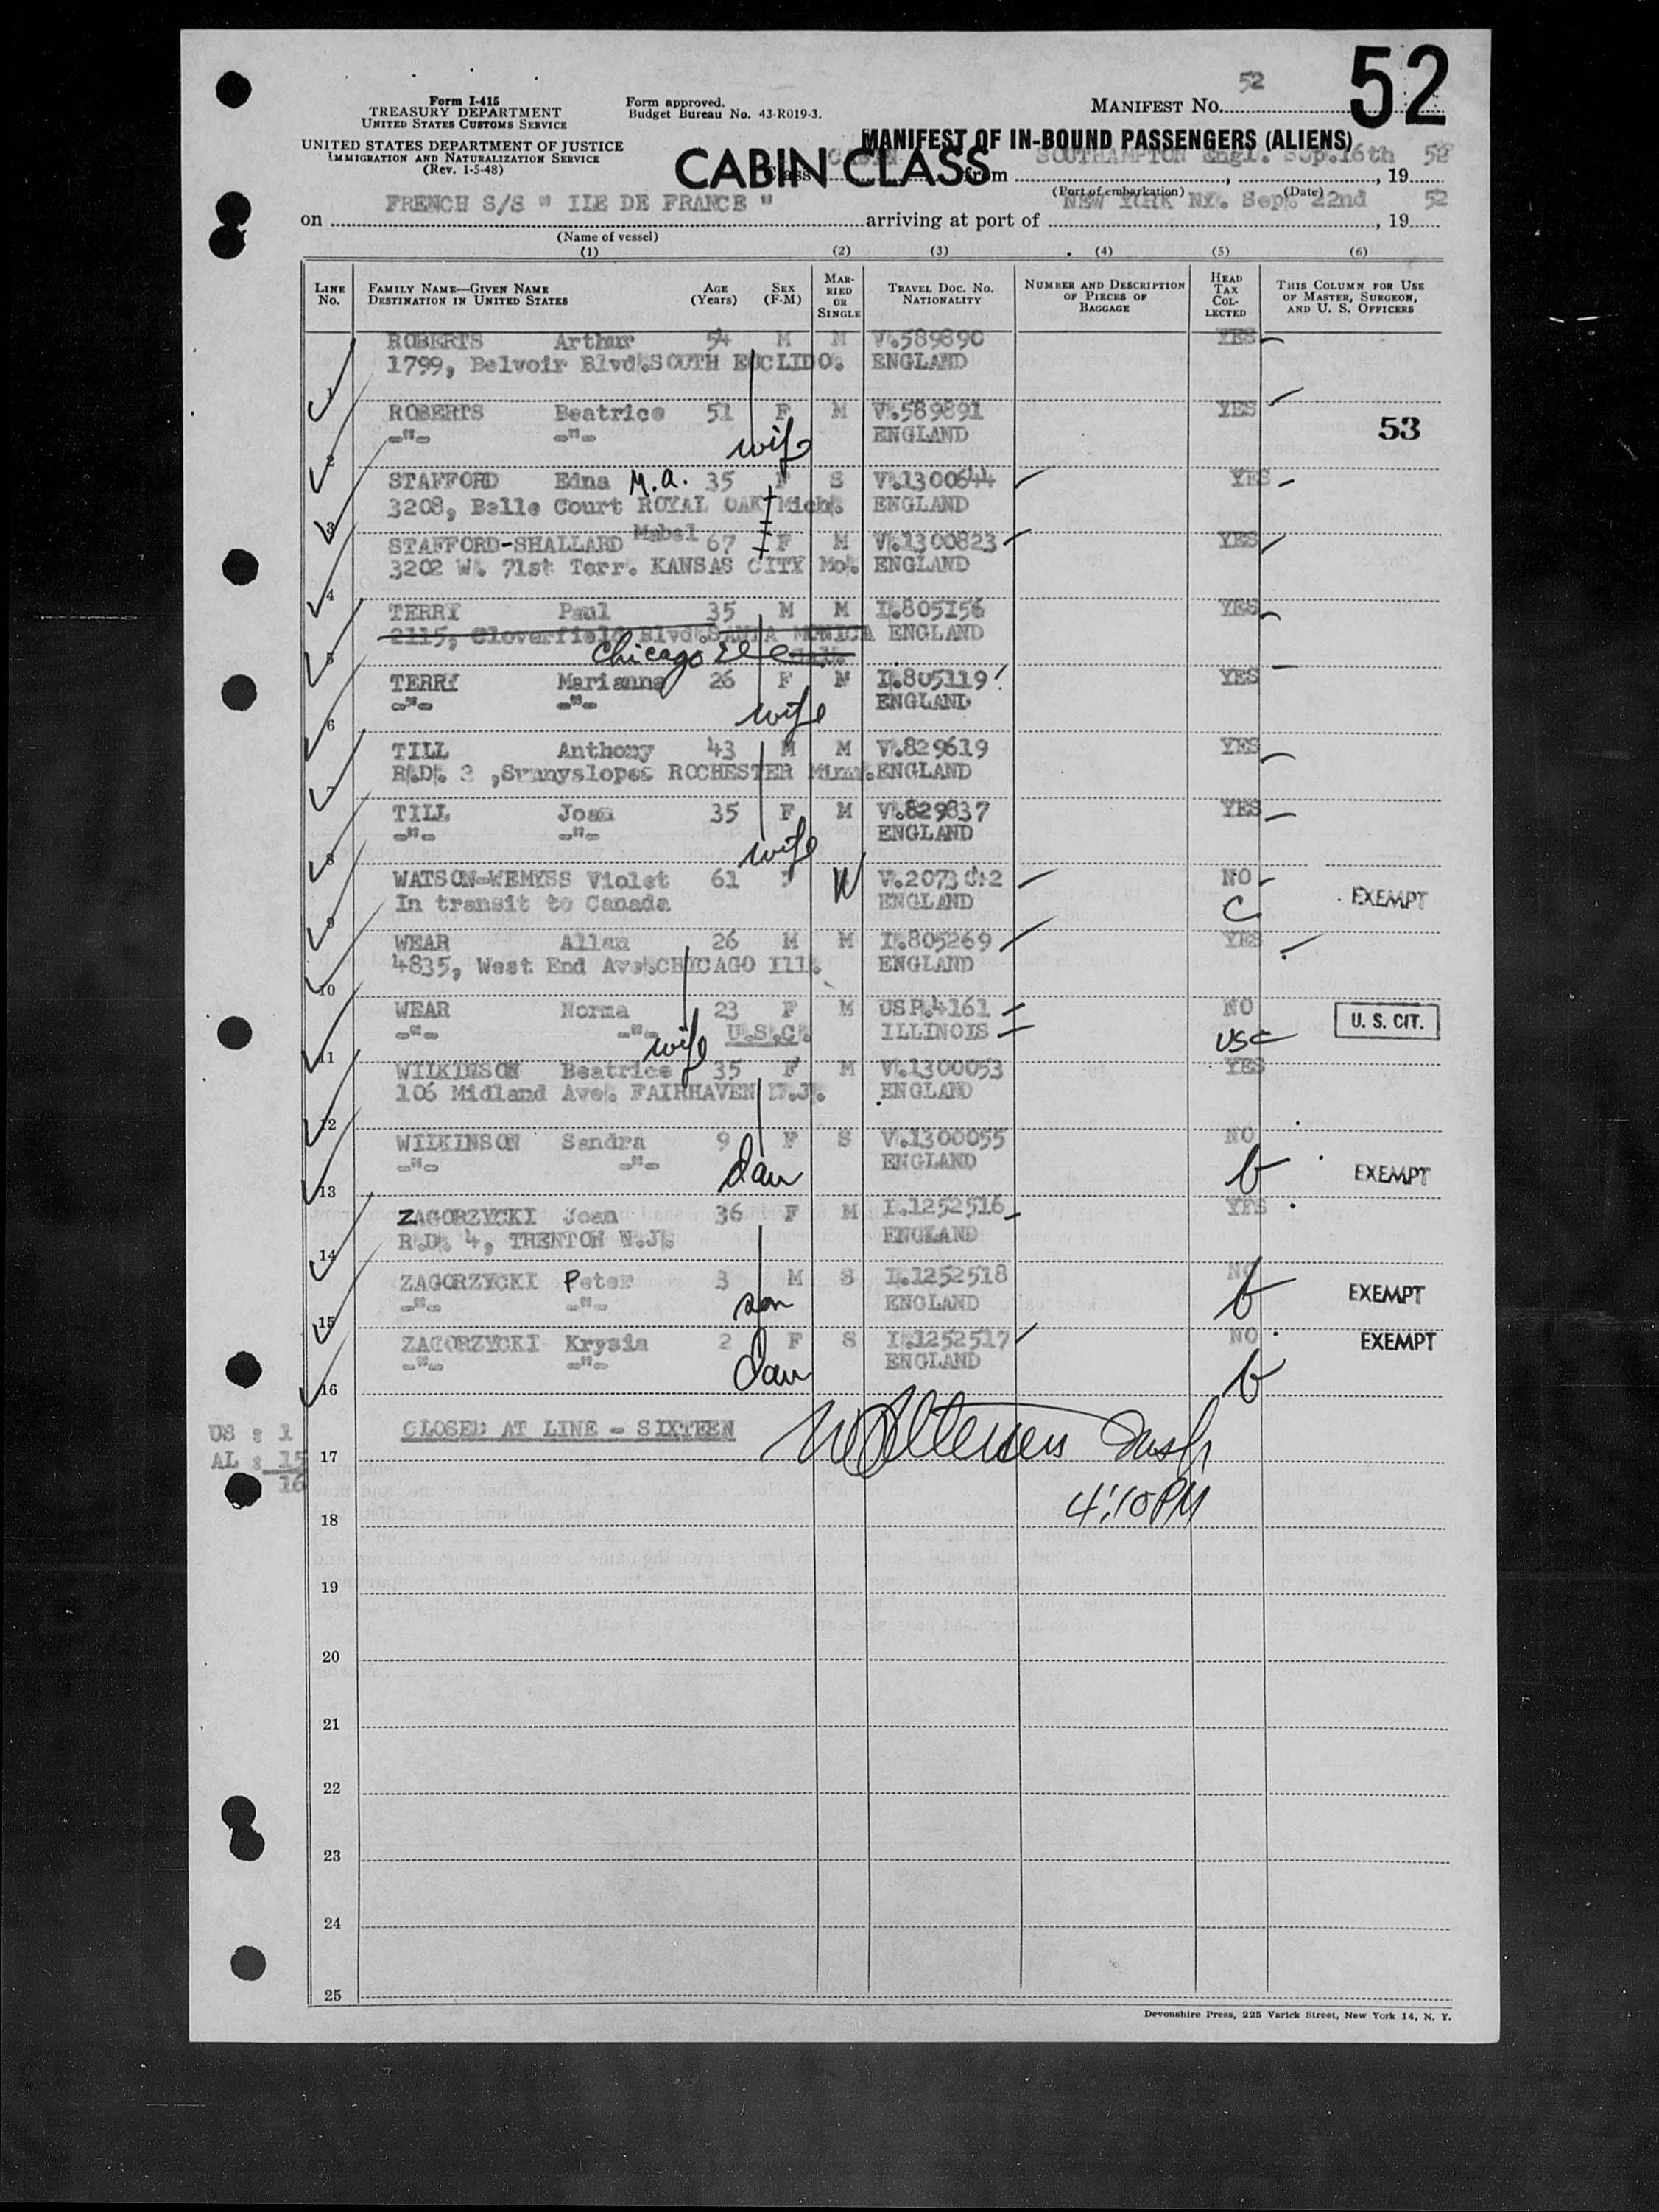 52
52
Form I-415
TREASURY DEPARTMENT
UNITED STATES CUSTOMS SERVICE
Form approved.
Budget Bureau No. 43-R019-3.
MANIFEST No.
UNITED STATES DEPARTMENT OF JUSTICE
IMMIGRATION AND NATURALIZATION SERVICE
(Rev. 1-5-48)
MANIFEST OF IN-BOUND PASSENGERS (ALIENS)
CABIN CLASS
Class CABIN from SOUTHAMPTON Engl. Sep.16th, 1952
(Port of embarkation) (Date)
on FRENCH S/S " ILE DE FRANCE " arriving at port of NEW YORK NY. Sep. 22nd, 1952
(Name of vessel)
(1) (2) (3) (4) (5) (6)
LINE No. FAMILY NAME—GIVEN NAME DESTINATION IN UNITED STATES AGE (Years) SEX (F-M) MARRIED OR SINGLE TRAVEL DOC. NO. NATIONALITY NUMBER AND DESCRIPTION OF PIECES OF BAGGAGE HEAD TAX COLLECTED THIS COLUMN FOR USE OF MASTER, SURGEON, AND U. S. OFFICERS
ROBERTS Arthur 54 M M V.589890 YES
1799, Belvoir Blvd.SOUTH EUCLIDO. ENGLAND
1
ROBERTS Beatrice 51 F M V.589891 YES
-"- -"- wife ENGLAND 53
2
STAFFORD Edna M.A. 35 F S V.1300644 YES
3208, Belle Court ROYAL OAK Mich. ENGLAND
3
STAFFORD-SHALLARD Mabel 67 F M V.1300823 YES
3202 W. 71st Terr. KANSAS CITY Mo. ENGLAND
4
TERRY Paul 35 M M I.805156 YES
2115, Cloverfield Blvd.SANTA MONICA ENGLAND
5 Chicago Ill
TERRY Marianne 26 F M I.805119 YES
-"- -"- wife ENGLAND
6
TILL Anthony 43 M M V.829619 YES
R.D. 2 ,Sunnyslopes ROCHESTER Minn.ENGLAND
7
TILL Joan 35 F M V.829837 YES
-"- -"- wife ENGLAND
8
WATSON-WEMYSS Violet 61 F W NO
In transit to Canada ENGLAND C EXEMPT
9
WEAR Allan 26 M M I.805269 YES
4835, West End Ave.CHICAGO Ill. ENGLAND
10
WEAR Norma 23 F M USP.4161 NO
-"- -"- wife U.S.C. ILLINOIS USC U. S. CIT.
11
WILKINSON Beatrice 35 F M V.1300053 YES
106 Midland Ave. FAIRHAVEN N.J. ENGLAND
12
WILKINSON Sandra 9 F S V.1300055 NO
-"- -"- dau ENGLAND b EXEMPT
13
ZAGORZYCKI Joan 36 F M I.1252516 YES
R.D. 4, TRENTON N.J. ENGLAND
14
ZAGORZYCKI Peter 3 M S I.1252518 NO
-"- -"- son ENGLAND b EXEMPT
15
ZAGORZYCKI Krysia 2 F S I.1252517 NO EXEMPT
-"- -"- dau ENGLAND b
16
US : 1
AL : 15
16
CLOSED AT LINE - SIXTEEN
17
4:10PM
18
19
20
21
22
23
24
25
Devonshire Press, 225 Varick Street, New York 14, N. Y.